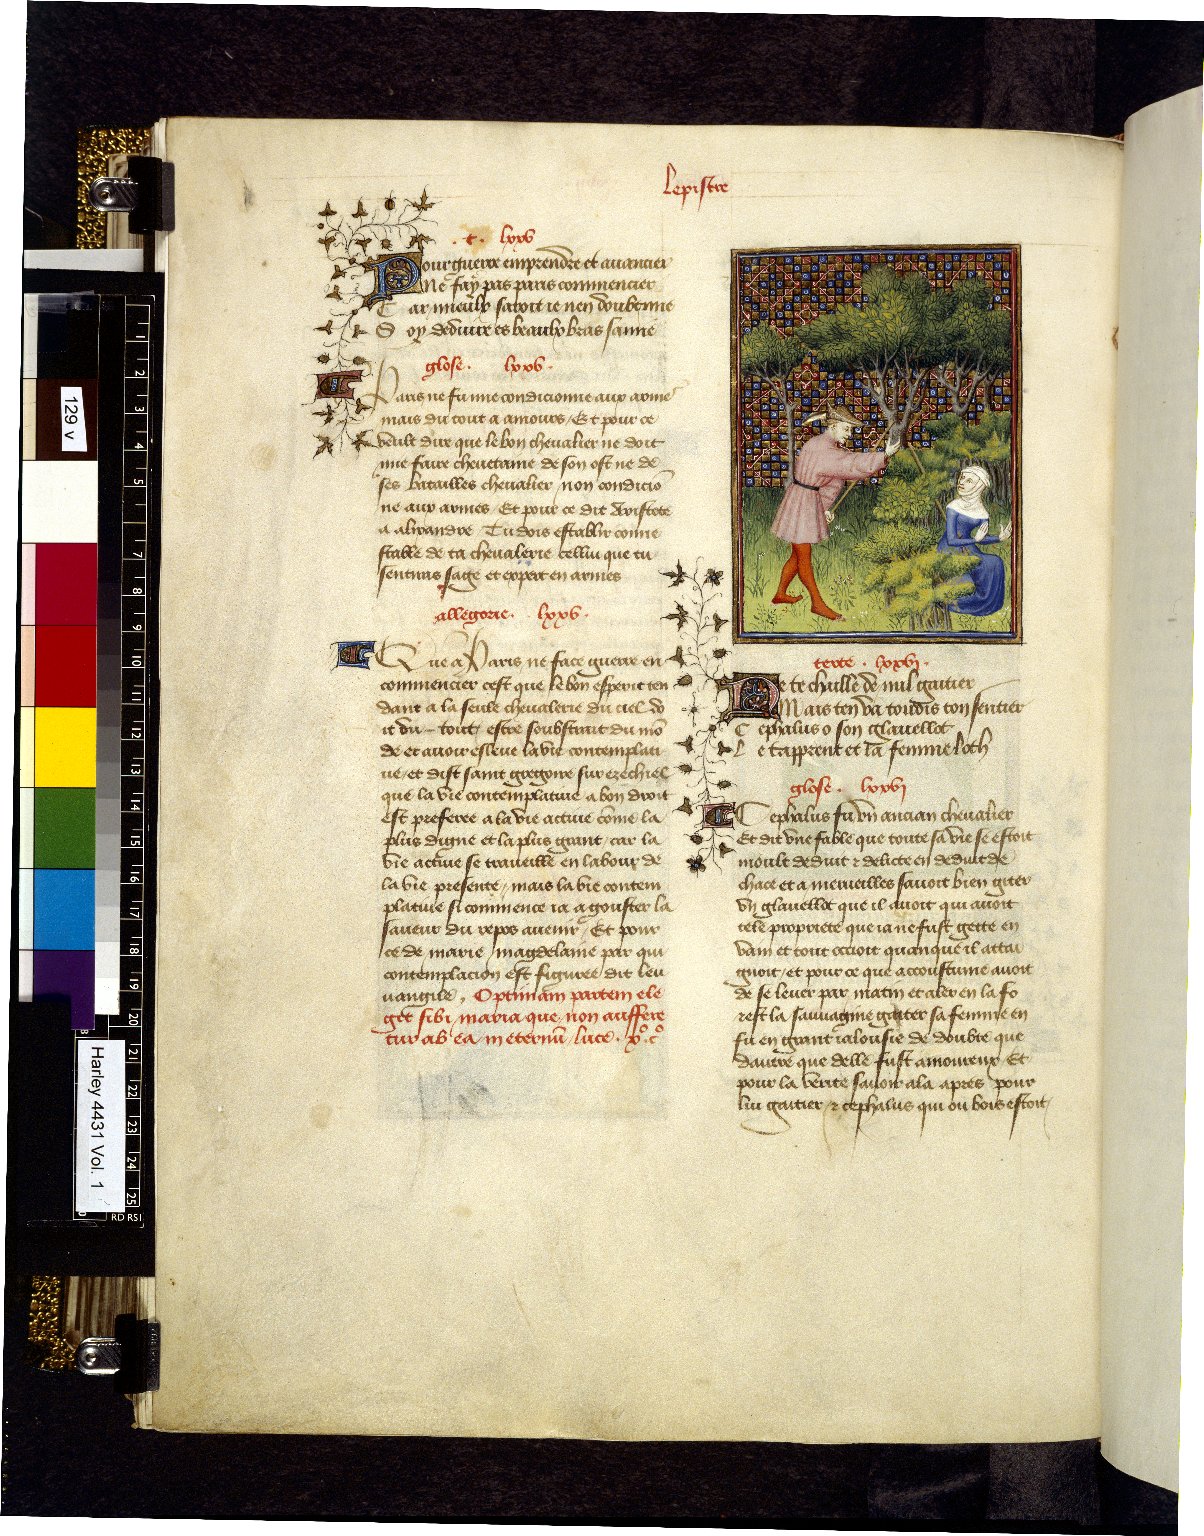 Lepistre
.t. lxxv
Pour guerre emprendre et auancier
Ne fay pas paris commencier
Car mieulx sauoit ie nen doubte mie
Soy deduire es beaulx bras samie
glose. lxxv.
Paris ne fu mie condicionne aux armes
mais du tout a amours / Et pour ce
veult dire que le bon cheualier ne doit
mie faire cheuetaine de son ost ne de
ses batailles cheualier non condicio
ne aux armes / Et pour ce dit Aristote
a alixandre Tu dois establir conne
stable de ta cheualerie cellui que tu
sentiras sage et expert en armes
allegorie. lxxv.
Que a Paris ne face guerre en
commencier cest que le bon esperit ten
dant a la seule cheualerie du ciel do
it du tout estre soubstrait du mo
de et auoir esleue la vie contemplati
ue / et dist saint gregoire sur ezechiel
que la vie contemplatiue a bon droit
est preferee a la vie actiue come la
plus digne et la plus grant / car la
vie actiue se traueille en labour de
la vie presente / mais la vie contem
platiue si commence ia a gouster la
saueur du repos auenir / Et pour
ce de marie magdelaine par qui
contemplacion est figuree dit leu
uangile, Optimam partem ele
git sibi maria que non auffere
tur ab ea in eternum luce. x.o c.o
texte. lxxvi.
De te chaille de nul gaitier
Mais ten va toudis ton sentier
Cephalus o son glauellot
Le tapprent et la femme loth
glose. lxxvi
Cephalus fu vn ancian cheualier
Et dit vne fable que toute sa vie se estoit
moult deduit et delicte en deduit de
chace et a merueilles sauoit bien giter
vn glauellot que il auoit qui auoit
tele propriete que ia ne fust gette en
vain et tout occioit quanque il attai
gnoit / et pour ce que accoustume auoit
de se leuer par matin et aler en la fo
rest la sauuagine gaiter sa femme en
fu en grant ialousie de doubte que
dautre que delle fust amoureux / Et
pour la verite sauoir ala apres pour
lui gaitier / et cephalus qui ou bois estoit
129 v
Harley 4431 Vol. 1
1
2
3
4
5
7
8
9
10
11
12
13
14
15
16
17
18
19
20
21
22
23
24
25
RD RSI